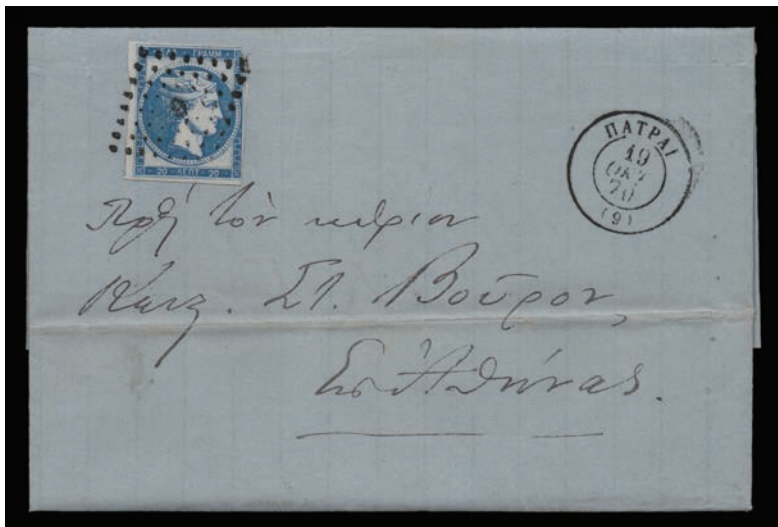 ΓΡΑΜΜ
9
20 ΛΕΠΤ 20
ΠΑΤΡΑΙ
19
ΟΚΤ
70
(9)
Πρὸς τὸν κύριον
Στ. Βοῦρον,
Εἰς Ἀθήνας.